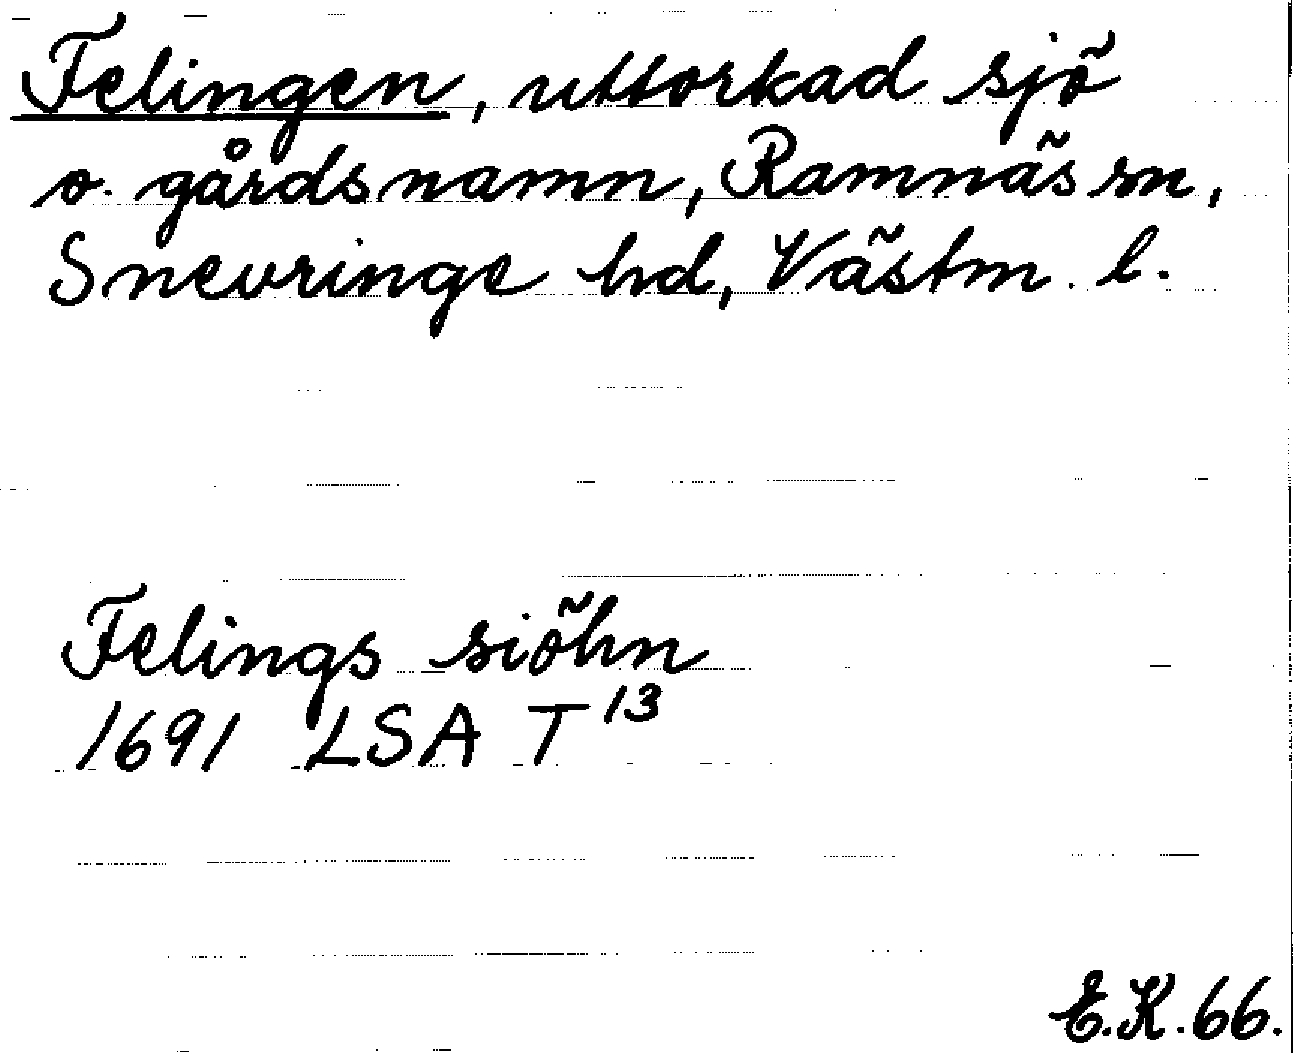 Felingen, uttorkad sjö
o. gårdsnamn, Ramnäs sn,
Snevringe hd, Västm. l.
Felings siöhn
1691 LSA T¹³
E.K.66.